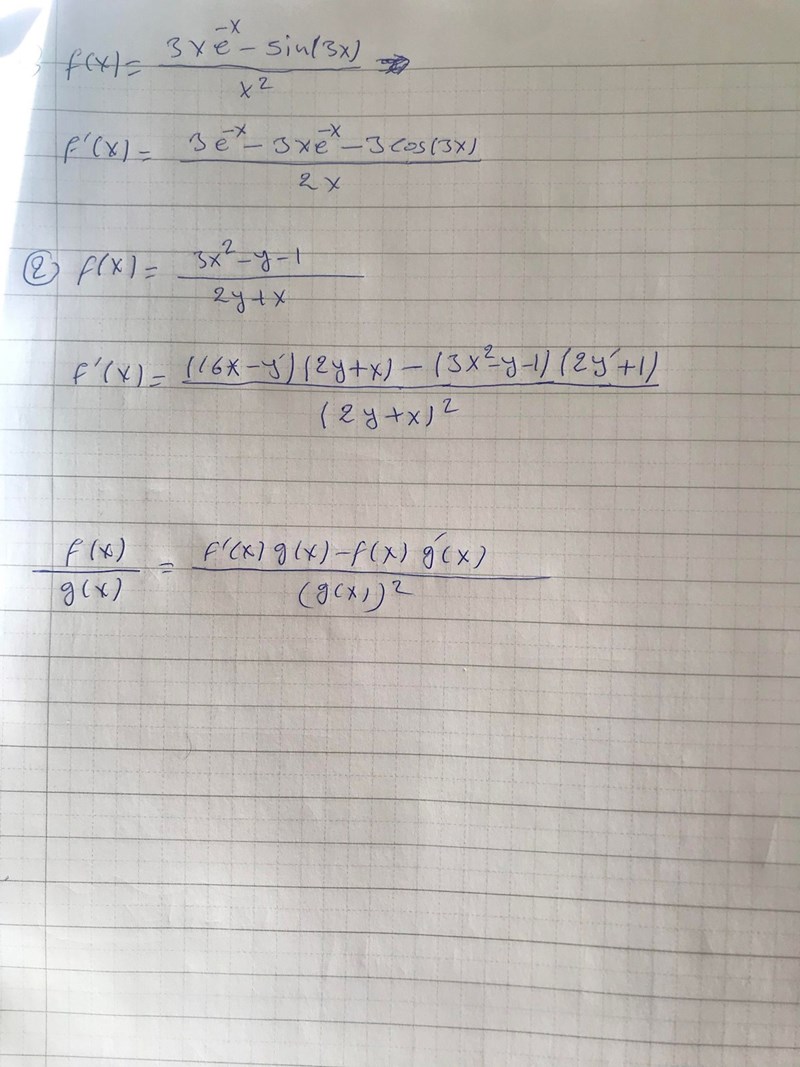 ) f(x) = (3xe^-x - sin(3x)) / x^2
f'(x) = (3e^-x - 3xe^-x - 3cos(3x)) / 2x
② f(x) = (3x^2 - y - 1) / (2y + x)
f'(x) = ((6x - y')(2y + x) - (3x^2 - y - 1)(2y' + 1) / (2y + x)^2
f(x) / g(x) = (f'(x) g(x) - f(x) g'(x)) / (g(x))^2